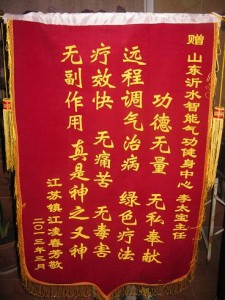 赠 山东沂水智能气功健身中心 李大宝主任
功德无量 无私奉献
远程调气治病 绿色疗法
疗效快 无痛苦 无毒害
无副作用 真是神之又神
江苏镇江凌春芳敬
二〇一三年三月